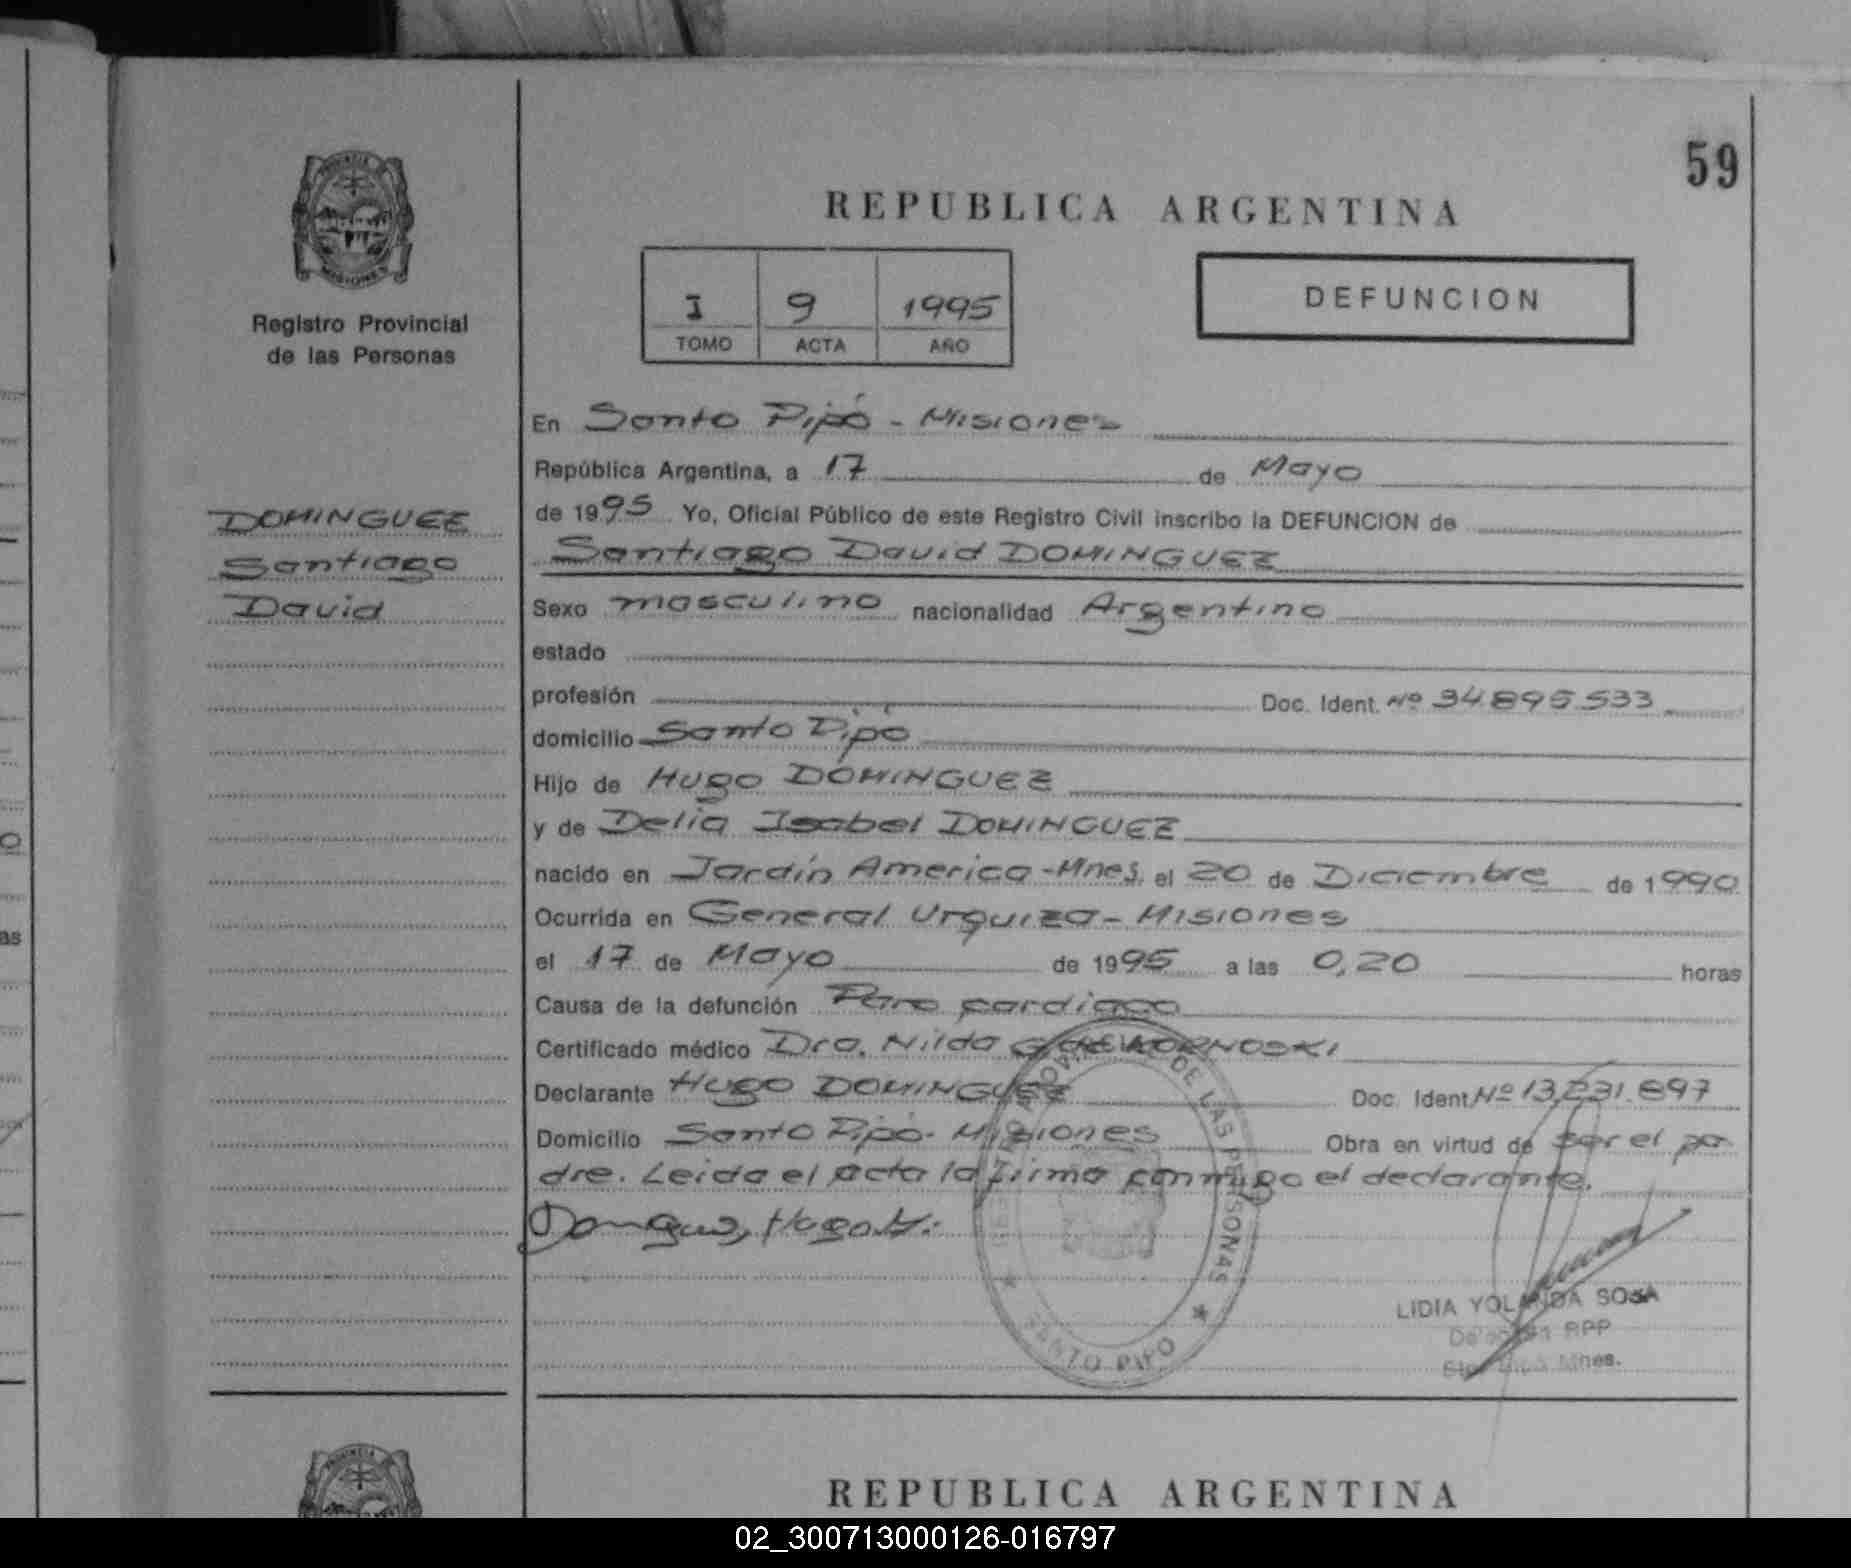 59
PROVINCIA
MISIONES
Registro Provincial
de las Personas
REPUBLICA ARGENTINA
I 9 1995
TOMO ACTA AÑO
DEFUNCION
DOMINGUEZ
Santiago
David
En Santo Pipó - Misiones
República Argentina, a 17 de Mayo
de 1995 Yo, Oficial Público de este Registro Civil inscribo la DEFUNCION de
Santiago David DOMINGUEZ
Sexo masculino nacionalidad Argentino
estado
profesión Doc. Ident. Nº 34.895.533
domicilio Santo Pipó
Hijo de Hugo DOMINGUEZ
y de Delia Isabel DOMINGUEZ
nacido en Jardín America-Mnes. el 20 de Diciembre de 1990
Ocurrida en General Urquiza - Misiones
el 17 de Mayo de 1995 a las 0,20 horas
Causa de la defunción Paro cardiaco
Certificado médico Dra. Nilda
Declarante Hugo DOMINGUEZ Doc. Ident. Nº 13.231.897
Domicilio Santo Pipó - Misiones Obra en virtud de ser el pa-
dre. Leida el acta la firma conmigo el declarante.
DE LAS PERSONAS
SANTO PIPO
LIDIA YOLANDA SOSA
RPP
Mnes.
PROVINCIA
REPUBLICA ARGENTINA
02_300713000126-016797